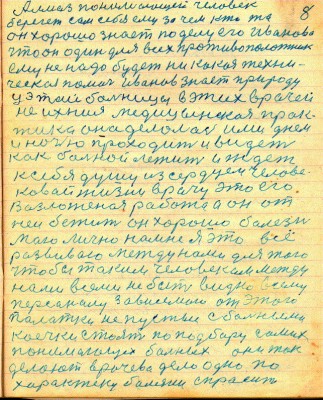 8
Алмаз понимающий человек
бережет сам себя ему зачем кто та
он хорошо знает по делу его Иванова
что он один для всех противоположник
ему не надо будет ни какая техни-
ческая помощ Иванов знает природу
у этой болници в этих врачей
не ихняя медицинская прак-
тика она делалас или днем
и ночю проходит и видет
как болной лежит и ждет
к себя душу и сердцем челове-
ковай жизни врачу это его
Возложеная работа он от
ней бежит он хорошо болезн
маго лично на мне я это всё
развиваю между нами для того
чтобы таким человекам между
нами всеми не быть видно всему
персаналу Зависемои от этого
палатки не пустые с болными
коечки стоят по подбару самих
понимающих болных они так
делают врачева дело одно по
характеру болячки спрасит